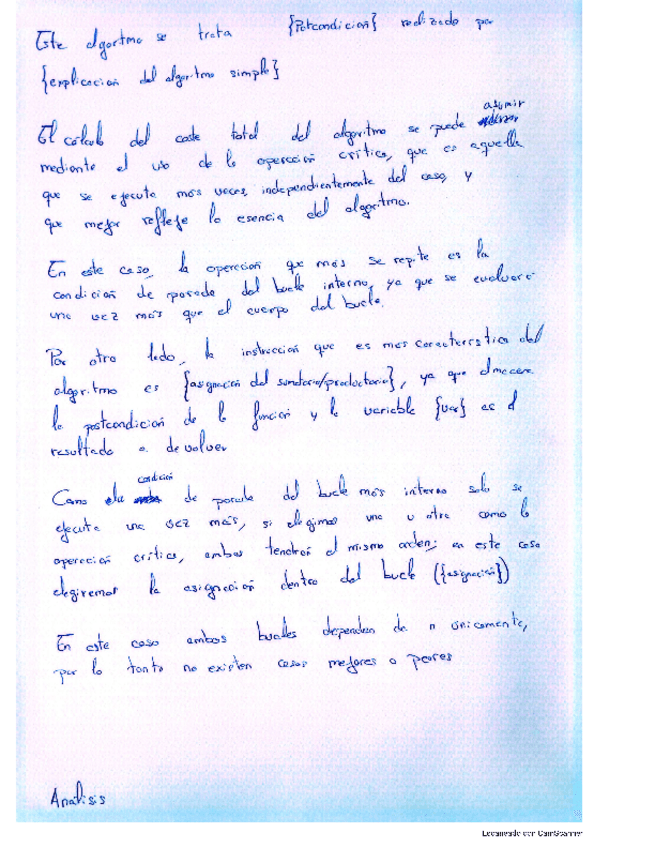 Este algoritmo se trata {Postcondición} realizado por
{explicación del algoritmo simple}
asumir
El calculo del coste total del algoritmo se puede
mediante el uso de la operación crítica, que es aquella
que se ejecuta más veces, independientemente del caso, y
que mejor refleje la esencia del algoritmo.
En este caso, la operación que más se repite es la
condición de parada del bucle interno, ya que se evaluará
una vez más que el cuerpo del bucle.
Por otro lado, la instrucción que es mas característica del
algoritmo es {asignación del sumatorio/productorio}, ya que almacena
la postcondición de la función y la variable {var} es el
resultado a devolver
condición
Como de parada del bucle más interno solo se
ejecuta una vez más, si elegimos una u otra como la
operación crítica, ambas tendrán el mismo orden; en este caso
elegiremos la asignación dentro del bucle ({asignación})
En este caso ambos bucles dependen de n únicamente,
por lo tanto no existen casos mejores o peores
Análisis
Escaneado con CamScanner